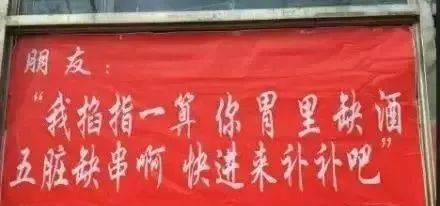 朋友：
“我掐指一算 你胃里缺酒
五脏缺串啊 快进来补补吧”